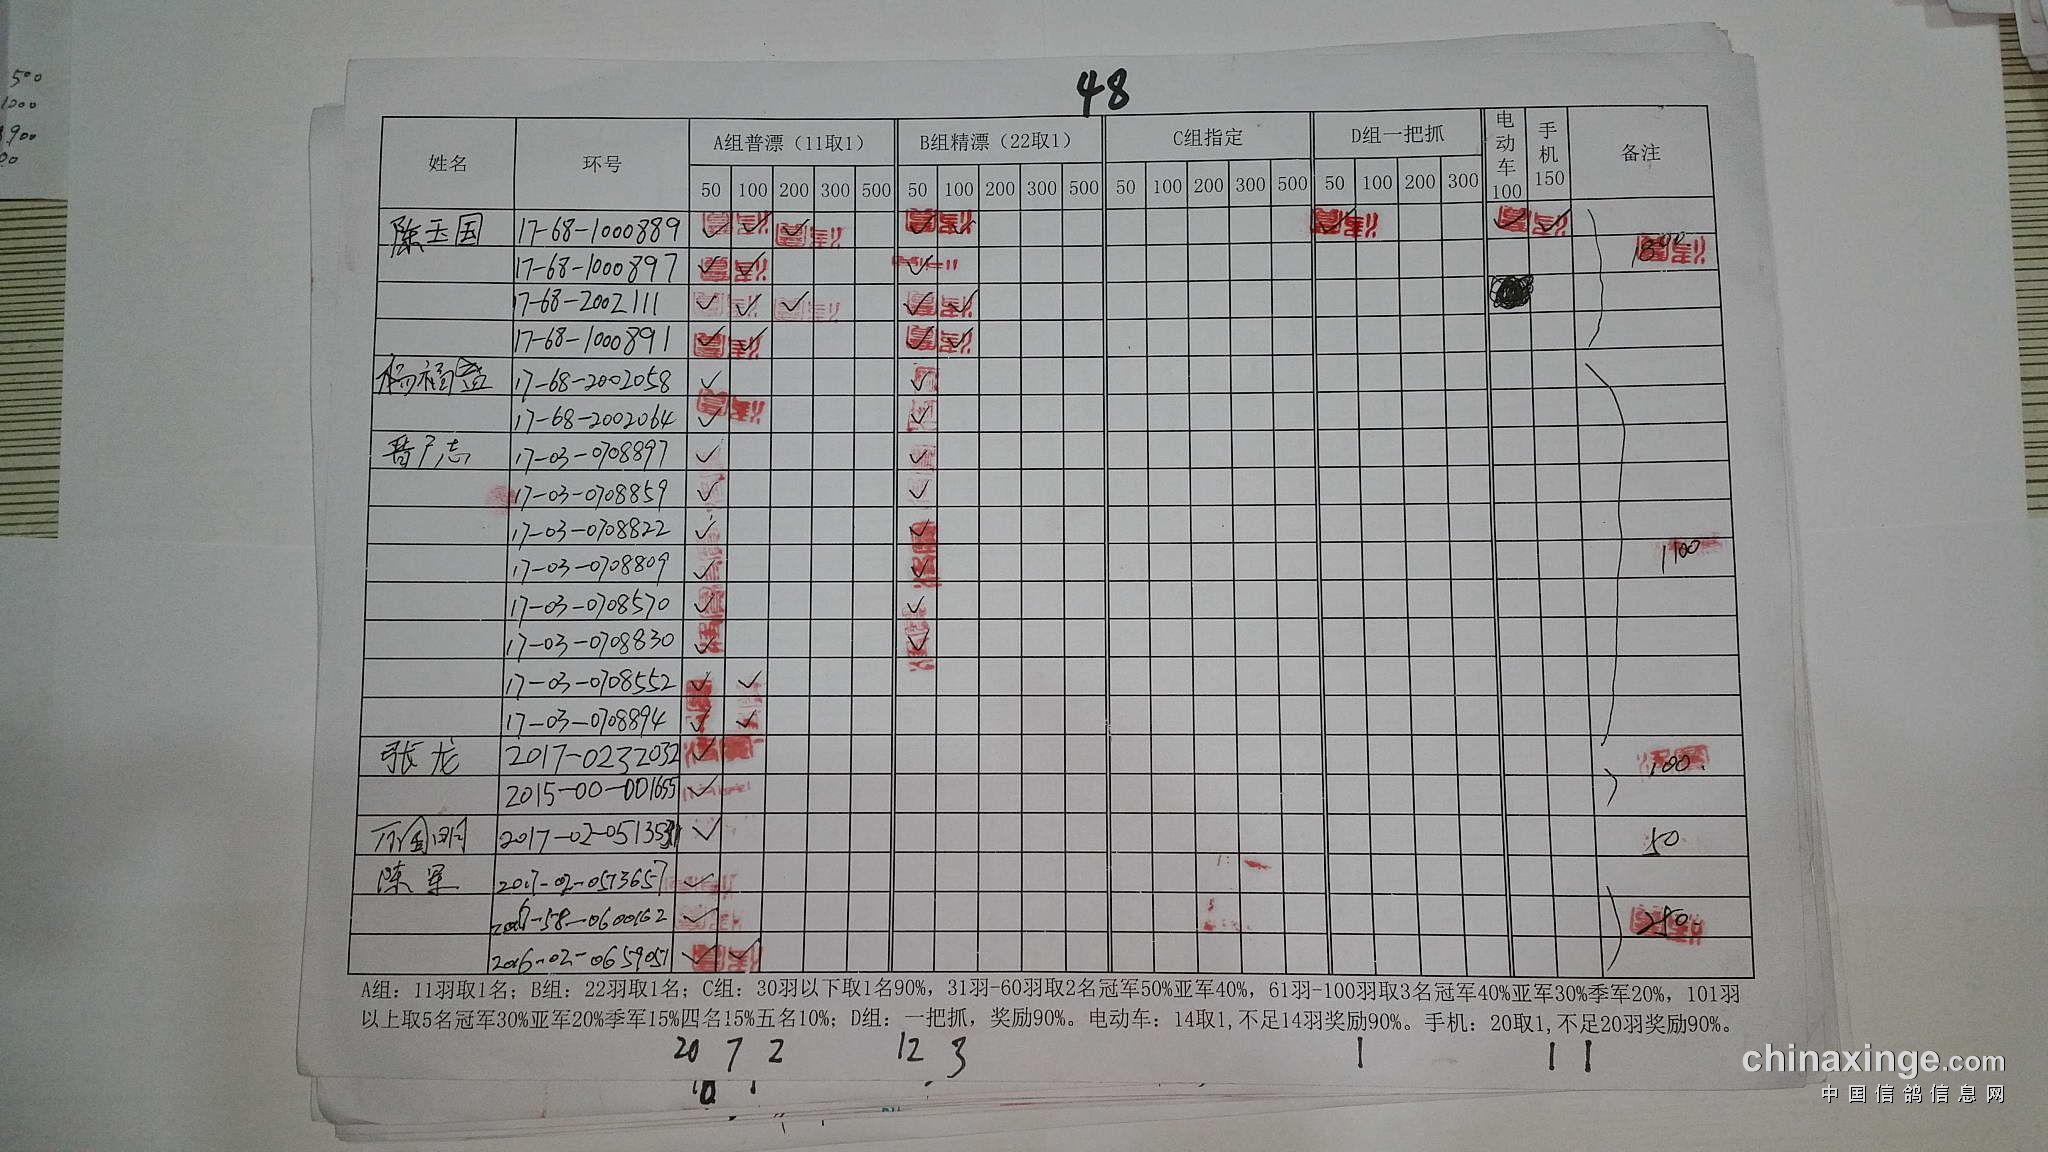 500
1200
900
48
姓名 环号 A组普漂（11取1） B组精漂（22取1） C组指定 D组一把抓 电动车100 手机150 备注
50 100 200 300 500 50 100 200 300 500 50 100 200 300 500 50 100 200 300
陈玉国 17-68-1000889 ✓ ✓ ✓ ✓ ✓ ✓ ✓ ✓
17-68-1000897 ✓ ✓ ✓
17-68-2002111 ✓ ✓ ✓ ✓ ✓
17-68-1000891 ✓ ✓ ✓ ✓
杨福益 17-68-2002058 ✓ ✓
17-68-2002064 ✓ ✓
17-03-0708897 ✓ ✓
17-03-0708859 ✓ ✓
17-03-0708822 ✓ ✓
17-03-0708809 ✓ ✓ 1100
17-03-0708570 ✓ ✓
17-03-0708830 ✓ ✓
17-03-0708552 ✓ ✓
17-03-0708894 ✓ ✓
张龙 2017-0232032 ✓ 100.
2015-00-001655 ✓
2017-02-051353 ✓ 50
陈军 2017-02-0573657 ✓
58-0600162 ✓ 250.
2016-02-0659051 ✓ ✓
A组：11羽取1名；B组：22羽取1名；C组：30羽以下取1名90%，31羽-60羽取2名冠军50%亚军40%，61羽-100羽取3名冠军40%亚军30%季军20%，101羽
以上取5名冠军30%亚军20%季军15%四名15%五名10%；D组：一把抓，奖励90%。电动车：14取1,不足14羽奖励90%。手机：20取1,不足20羽奖励90%。
20 7 2 12 3 1 1 1
chinaxinge.com
中国信鸽信息网